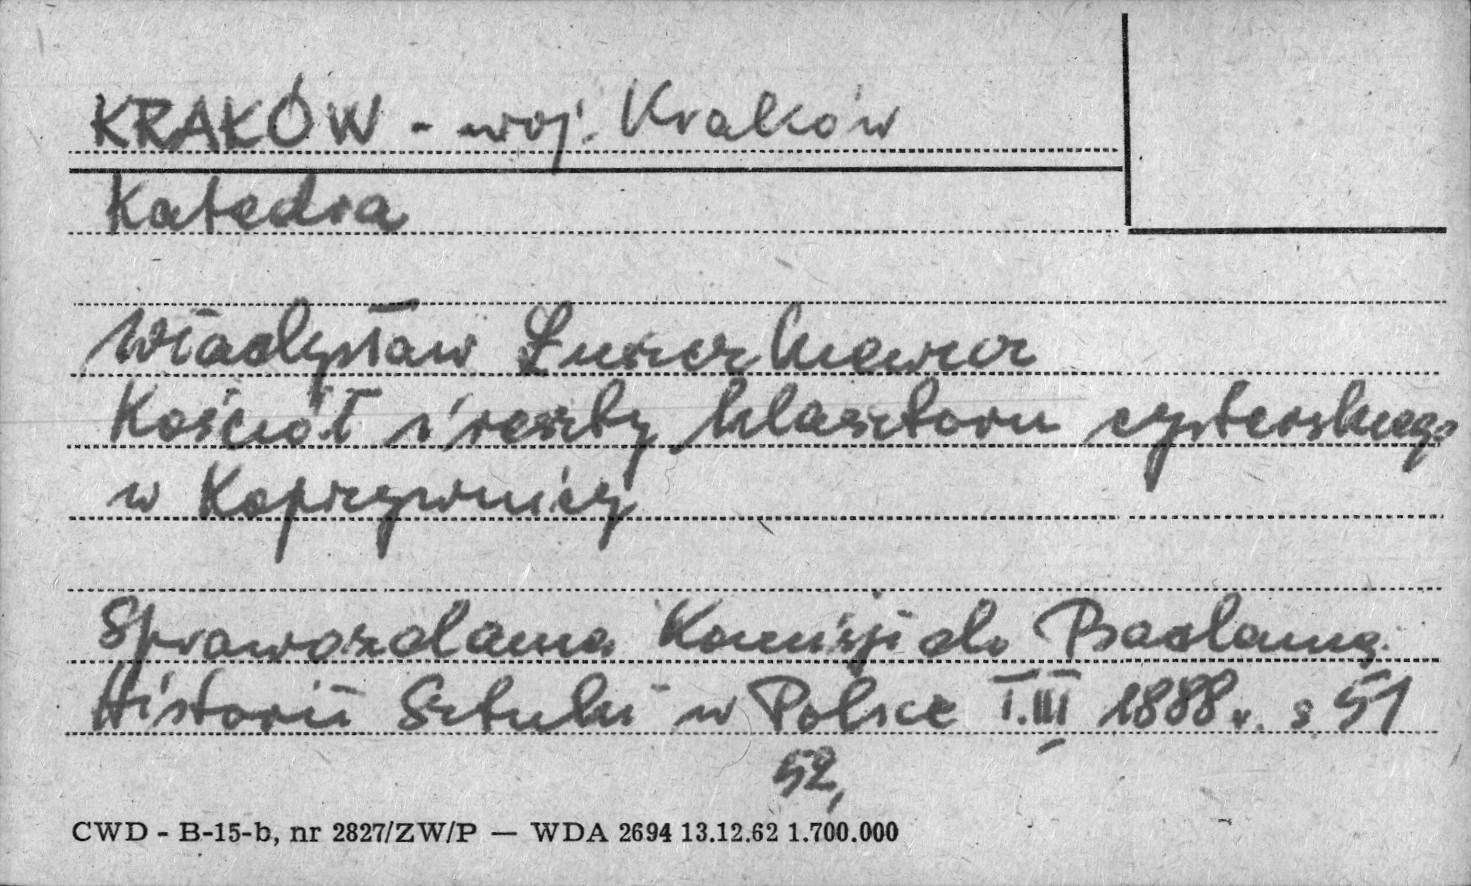 KRAKÓW - woj. Kraków
Katedra
Władysław Łuszczkiewicz
Kościół i reszty klasztoru cysterskiego
w Koprzywnicy
Sprawozdania Komisji do Badania
Historii Sztuki w Polsce T.III 1888 r. s 51
52,
CWD - B-15-b, nr 2827/ZW/P — WDA 2694 13.12.62 1.700.000